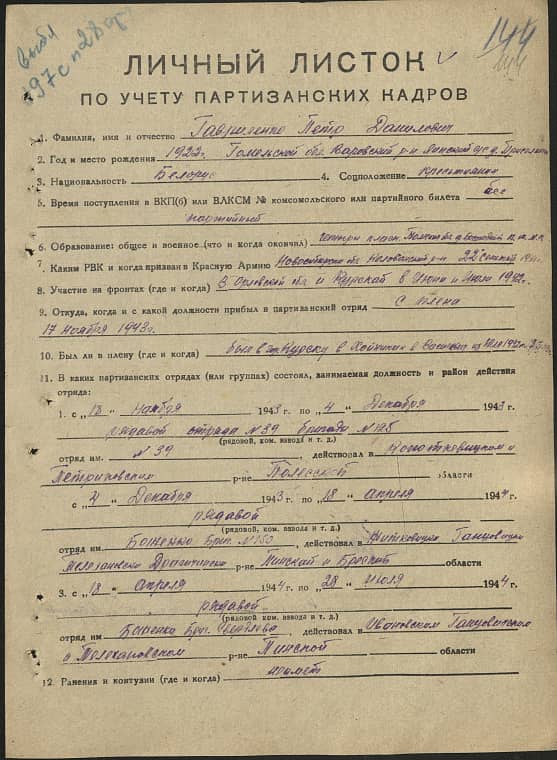 выбл
97с п 28
144
ЛИЧНЫЙ ЛИСТОК
ПО УЧЕТУ ПАРТИЗАНСКИХ КАДРОВ
1. Фамилия, имя и отчество Гавриленко Петр Данилович
2. Год и место рождения 1922г. Гомельской обл.
3. Национальность Белорус 4. Соцположение крестьянин
5. Время поступления в ВКП(б) или ВЛКСМ № комсомольского или партийного билета бес
партийный
6. Образование: общее и военное (что и когда окончил)
7. Каким РВК и когда призван в Красную Армию Новосибирско обл. 22
8. Участие на фронтах (где и когда) В Орловской обл и Курской в Июне и Июле 1942г.
9. Откуда, когда и с какой должности прибыл в партизанский отряд с плена
17 ноября 1943г.
10. Был ли в плену (где и когда) был в г. Курску в Хойники
11. В каких партизанских отрядах (или группах) состоял, занимаемая должность и район действия
отряда:
1. с „18“ Ноября 1943 г. по „4“ Декабря 1943 г.
рядавой отряда №39 бригады №125
(рядовой, ком. взвода и т. д.)
отряд им. №39, действовал в
Петриковским р-не Полесской области
с „4“ Декабря 1943 г. по „18“ апреля 1944 г.
рядавой
(рядовой, ком. взвода и т. д.)
отряд им Боженко Бриг. №150, действовал в Житковицком Ганцовицком
р-не Пинской и Брестской области
3. с „18“ апреля 1944 г. по „28“ июля 1944 г.
рядавой
(рядовой, ком. взвода и т. д.)
отряд им Боженко Бриг. Свердлова, действовал в Ивановском Ганцовичском
и Телехановском р-не Пинской области
12. Ранения и контузии (где и когда) неимет